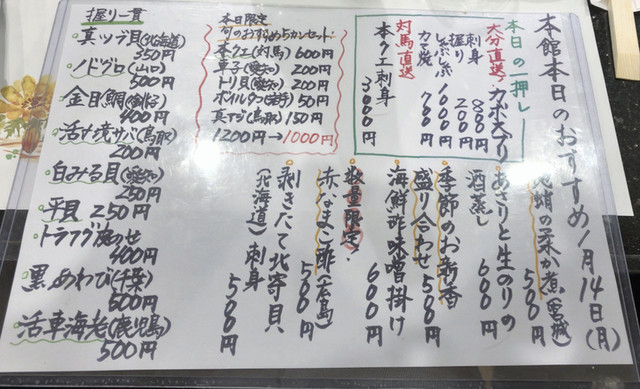 本館本日のおすすめ1月14日(月)
本日の一押し
大分直送 カボスブリ
刺身 800円
握り 200円
しゃぶしゃぶ 1000円
カマ焼 700円
対馬直送
本クエ刺身
3000円
地蛸の柔か煮(宮城)
500円
あさりと生のりの
酒蒸し 600円
季節のお新香
盛り合わせ 500円
海鮮酢味噌掛け
600円
数量限定!
赤なまこ酢(広島)
500円
剥きたて北寄貝
(北海道)刺身
500円
本日限定
旬のおすすめ5カンセット!
本クエ(対馬) 600円
車子(愛知) 200円
トリ貝(愛知) 200円
ボイルタコ(岩手) 50円
真アジ(鳥取) 150円
1200円→1000円
握り一貫
真ツブ貝(北海道)
350円
ノドグロ(山口)
500円
金目鯛(銚子)
400円
活〆境サバ(鳥取)
200円
白みる貝(愛知)
250円
平貝 250円
トラフグ炙のせ
400円
黒あわび(千葉)
500円
活車海老(鹿児島)
500円